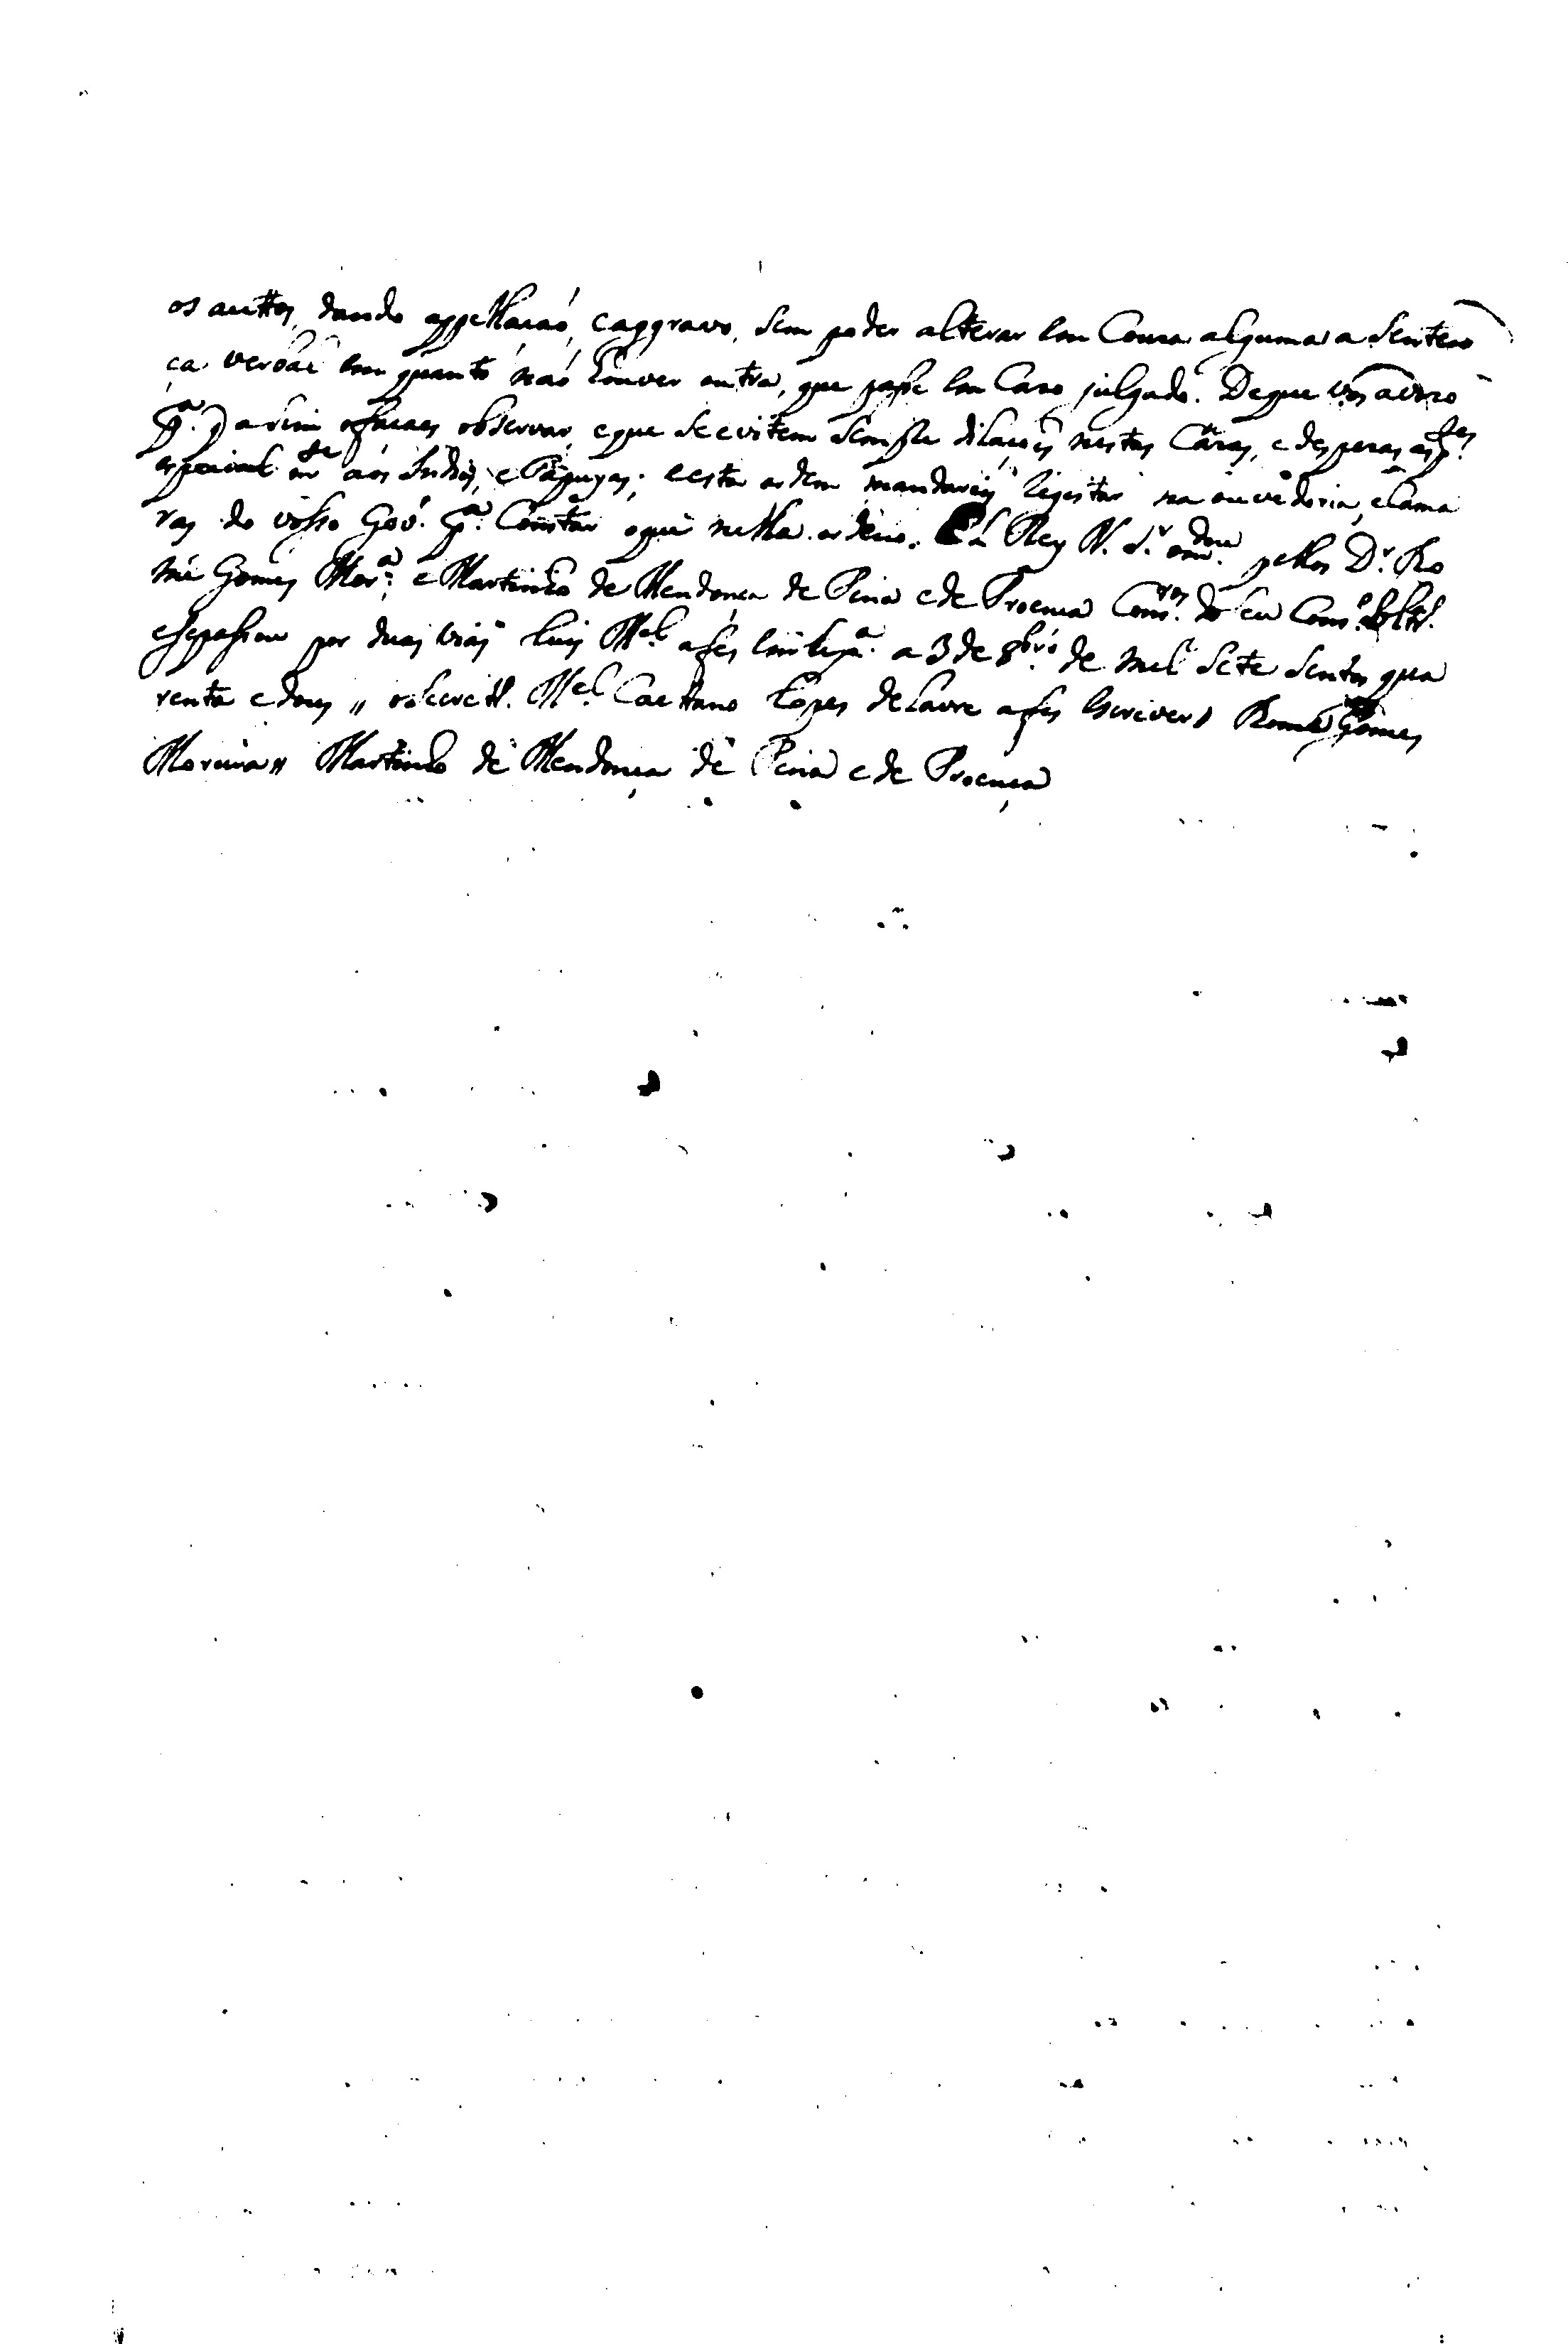 os auttos, dando appellacaó, e aggravo, sem poder alterar em Couza alguma a Senten
ça verbal em quanto naó houver outra, que passe em Cazo julgado. De que vos avizo
p.ª q̃ assim ofaçaes observar, e que se evitem sempre dilaçoẽs nestas Cãzas, e despezas as p.tes
especialm.te aos Indios, e Tapuyas; e esta ordem mandareis Registar na ouvedoria, e Cama
ras do vosso Gov.º p.ª Constar oque nella ordeno. El Rey N. S.r o m.dou pellos D.r Ro
mé Gomes Mor.ª e Martinho de Mendonça de Pina e de Proença Cons.ros do seu Cons.º Ultr.
e se passou por duas vias Luis M.el a fes em Lix.ª a 3 de 8br.º de mil Sete Sentos qua
renta e dous // o Secret.r M.el Caetano Lopes de Lavre a fes escrever // Romé Gomes
Moreira // Martinho de Mendonça de Pina e de Proença